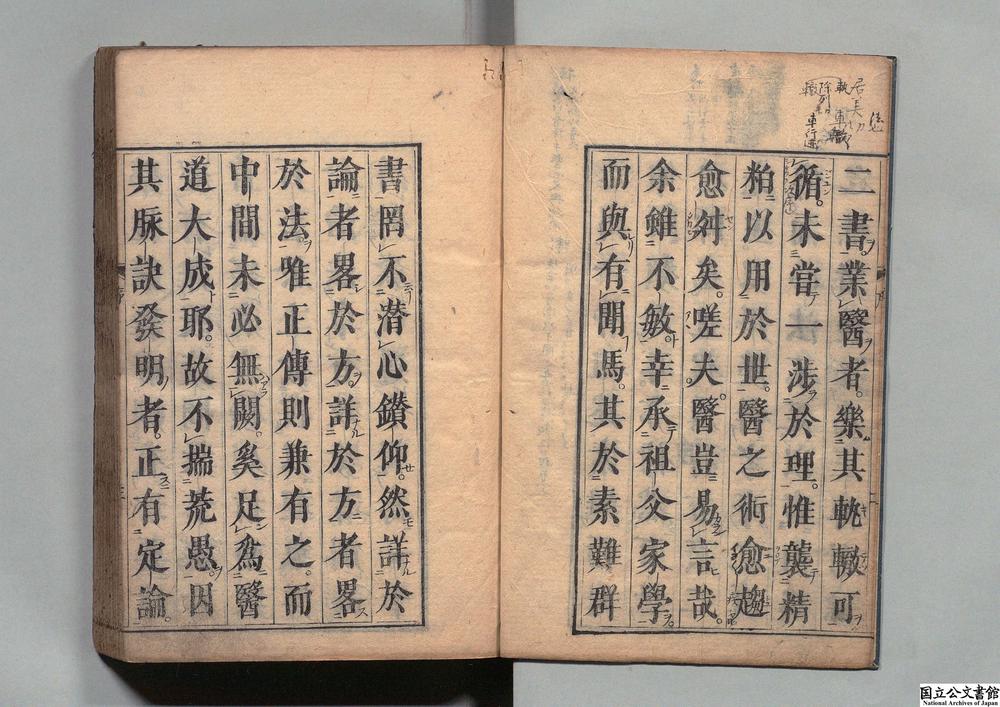 二書業醫者樂其軌轍可
循未嘗一涉於理惟襲精
粕以用於世醫之術愈趨
愈舛矣嗟夫醫豈易言哉
余雖不敏幸承祖父家學
而與有聞焉其於素難群
書罔不潛心鑽仰然詳於
論者畧於方詳於方者畧
於法唯正傳則兼有之而
中間未必無闕奚足為醫
道大成耶故不揣荒愚因
其脉訣發明者正有定論
国立公文書館
National Archives of Japan